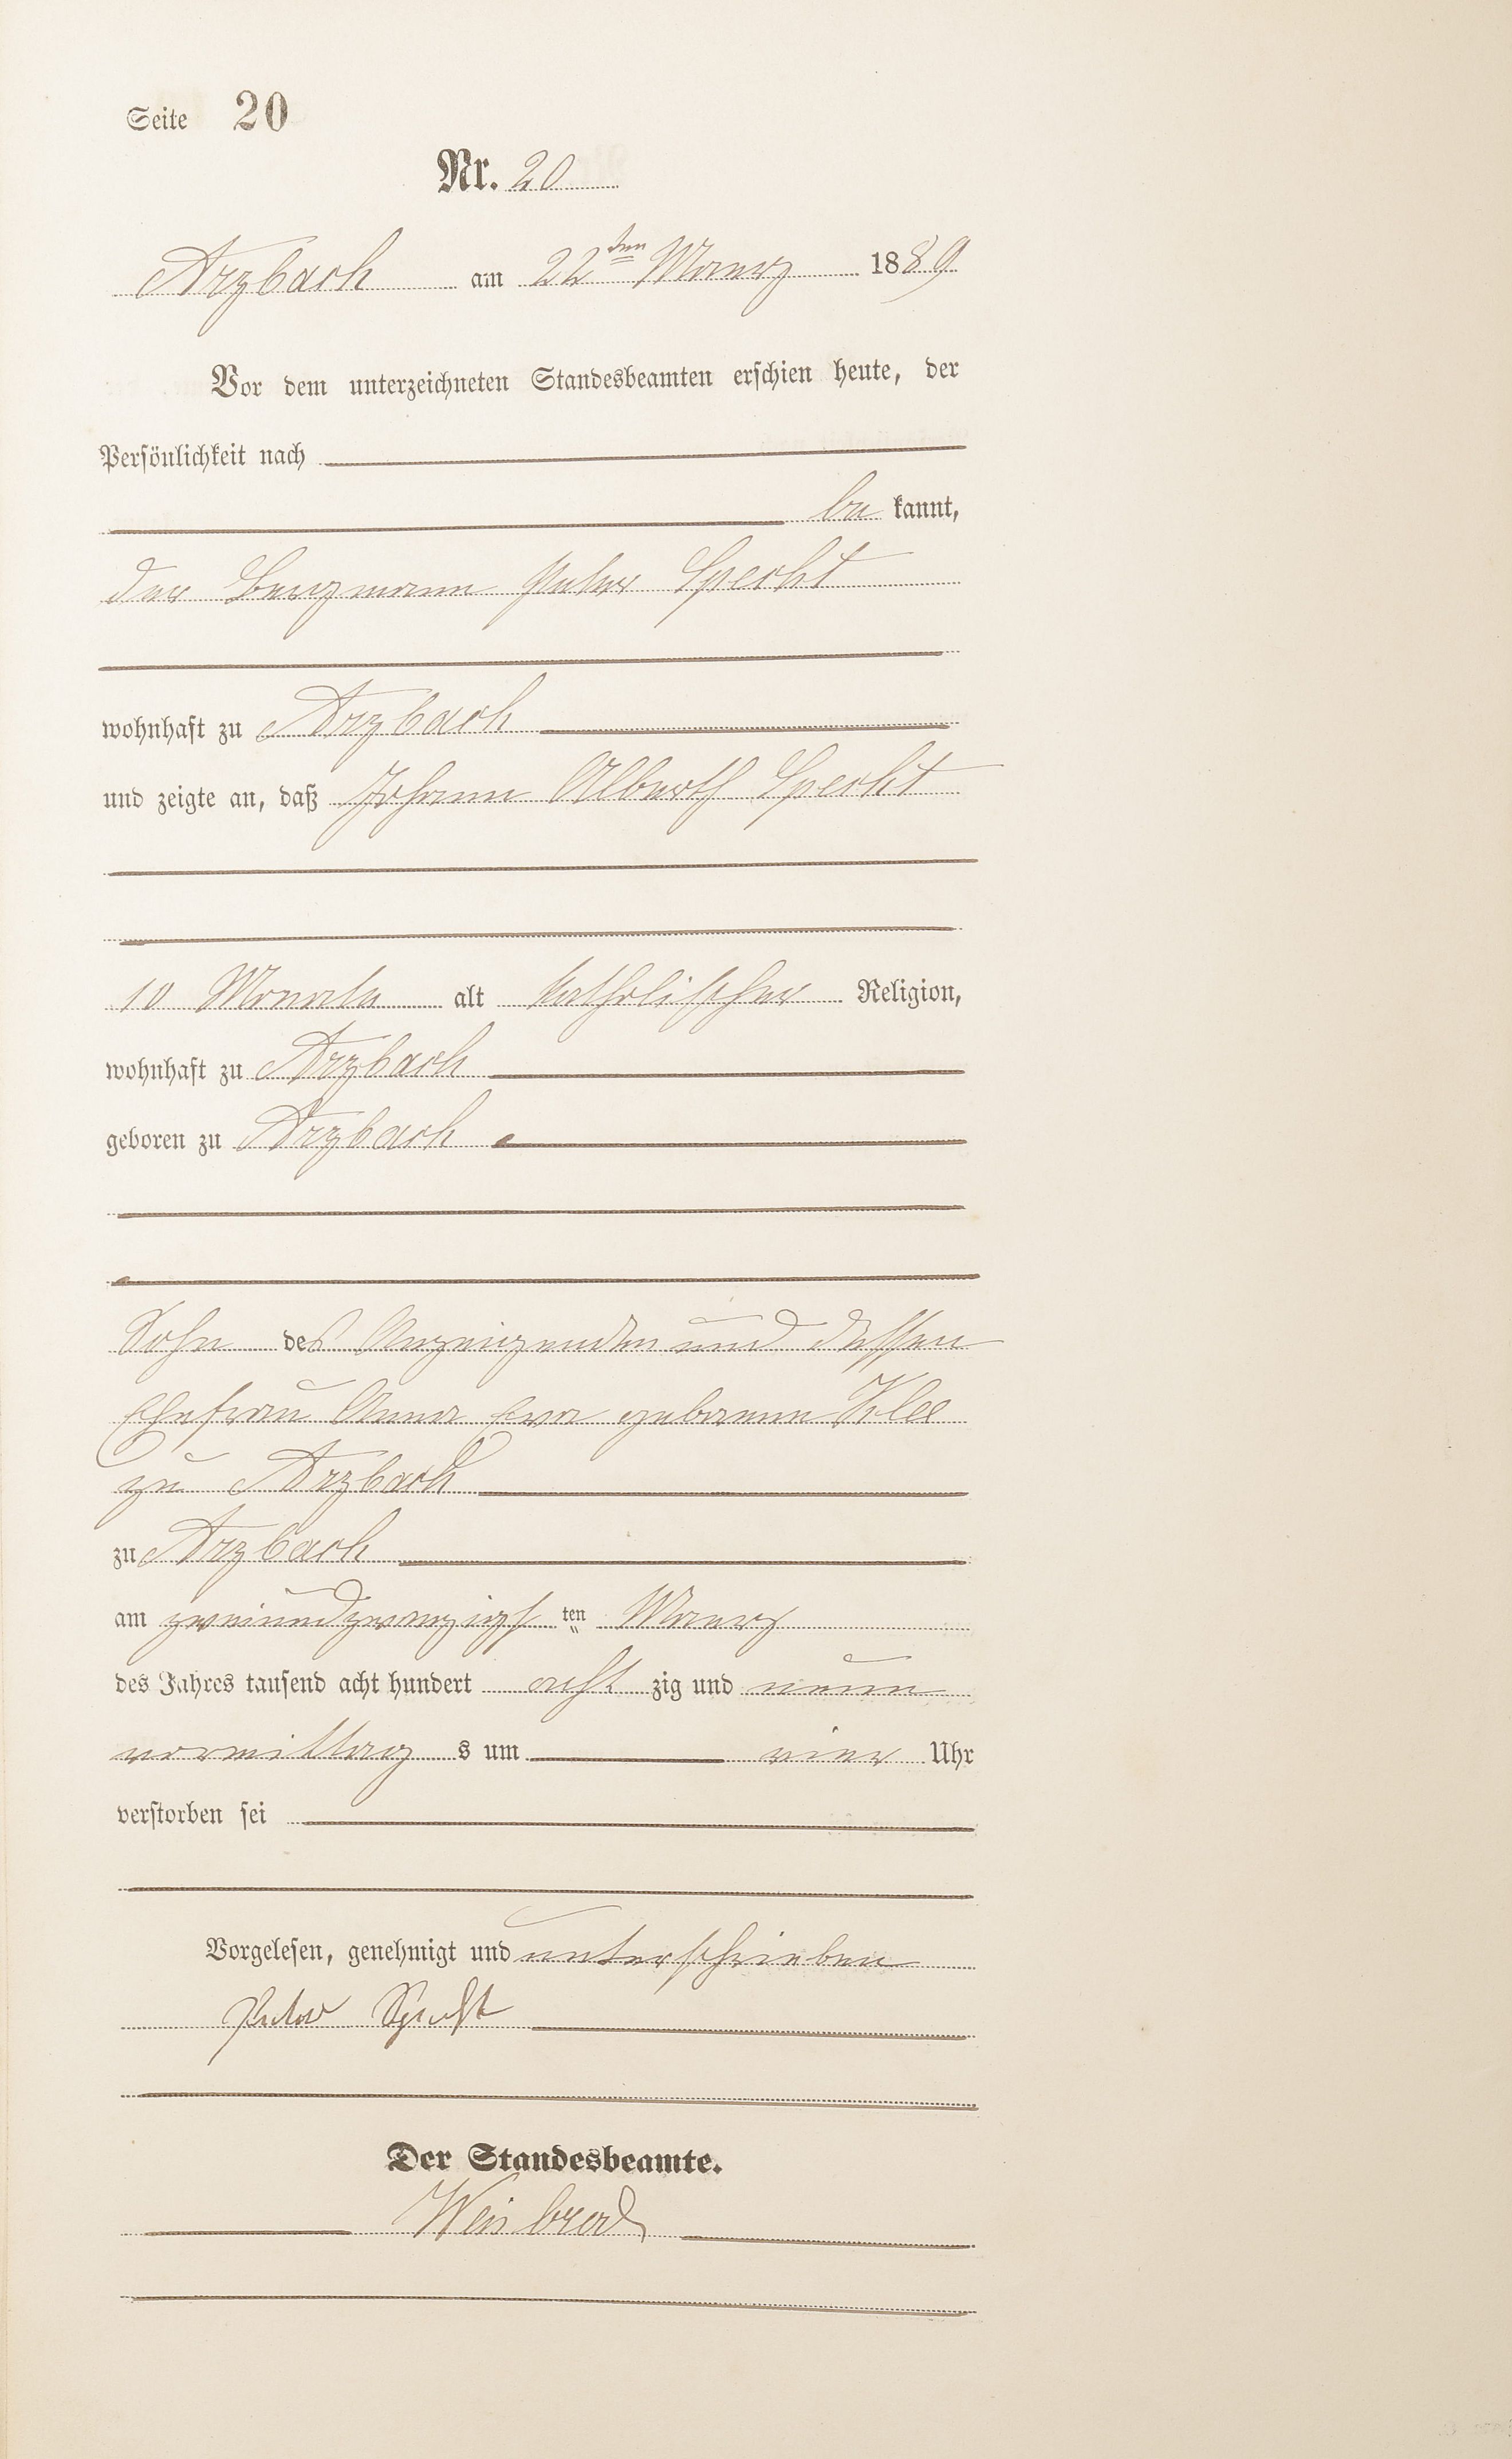 Seite 20
Nr. 20
Arzbach am 22ten Maerz 1889
Vor dem unterzeichneten Standesbeamten erschien heute, der
Persönlichkeit nach
be kannt,
der Bergmann Peter Specht
wohnhaft zu Arzbach
und zeigte an, daß Johann Alberth Specht
10 Monate alt katholischer Religion,
wohnhaft zu Arzbach
geboren zu Arzbach
Sohn des Anzeigenden und dessen
Ehefrau Anna Eva geborene Klee
zu Arzbach
zu Arzbach
am zweiundzwanzigs ten Maerz
des Jahres tausend acht hundert acht zig und neun
vormittag s um vier Uhr
verstorben sei
Vorgelesen, genehmigt und unterschrieben
Peter Specht
Der Standesbeamte.
Weisbrod